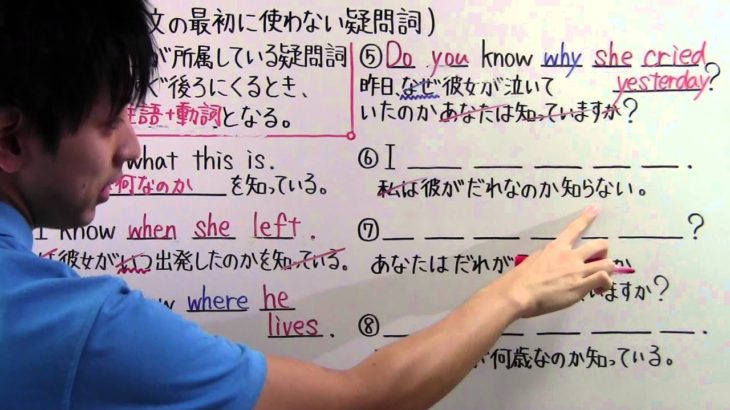 文の最初に使わない疑問詞)
が所属している疑問詞
ぐ後ろにくるとき、
主語+動詞となる。
what this is.
何なのか を知っている。
I know when she left.
彼女がいつ出発したのかを知っている。
where he
lives.
⑤ Do you know why she cried
yesterday?
昨日、なぜ彼女が泣いて
いたのかあなたは知っていますか?
⑥ I ___ ___ ___ ___ ___.
私は彼がだれなのか知らない。
⑦ ___ ___ ___ ___ ___?
あなたはだれが か
いますか?
⑧ ___ ___ ___ ___ ___.
が何歳なのか知っている。